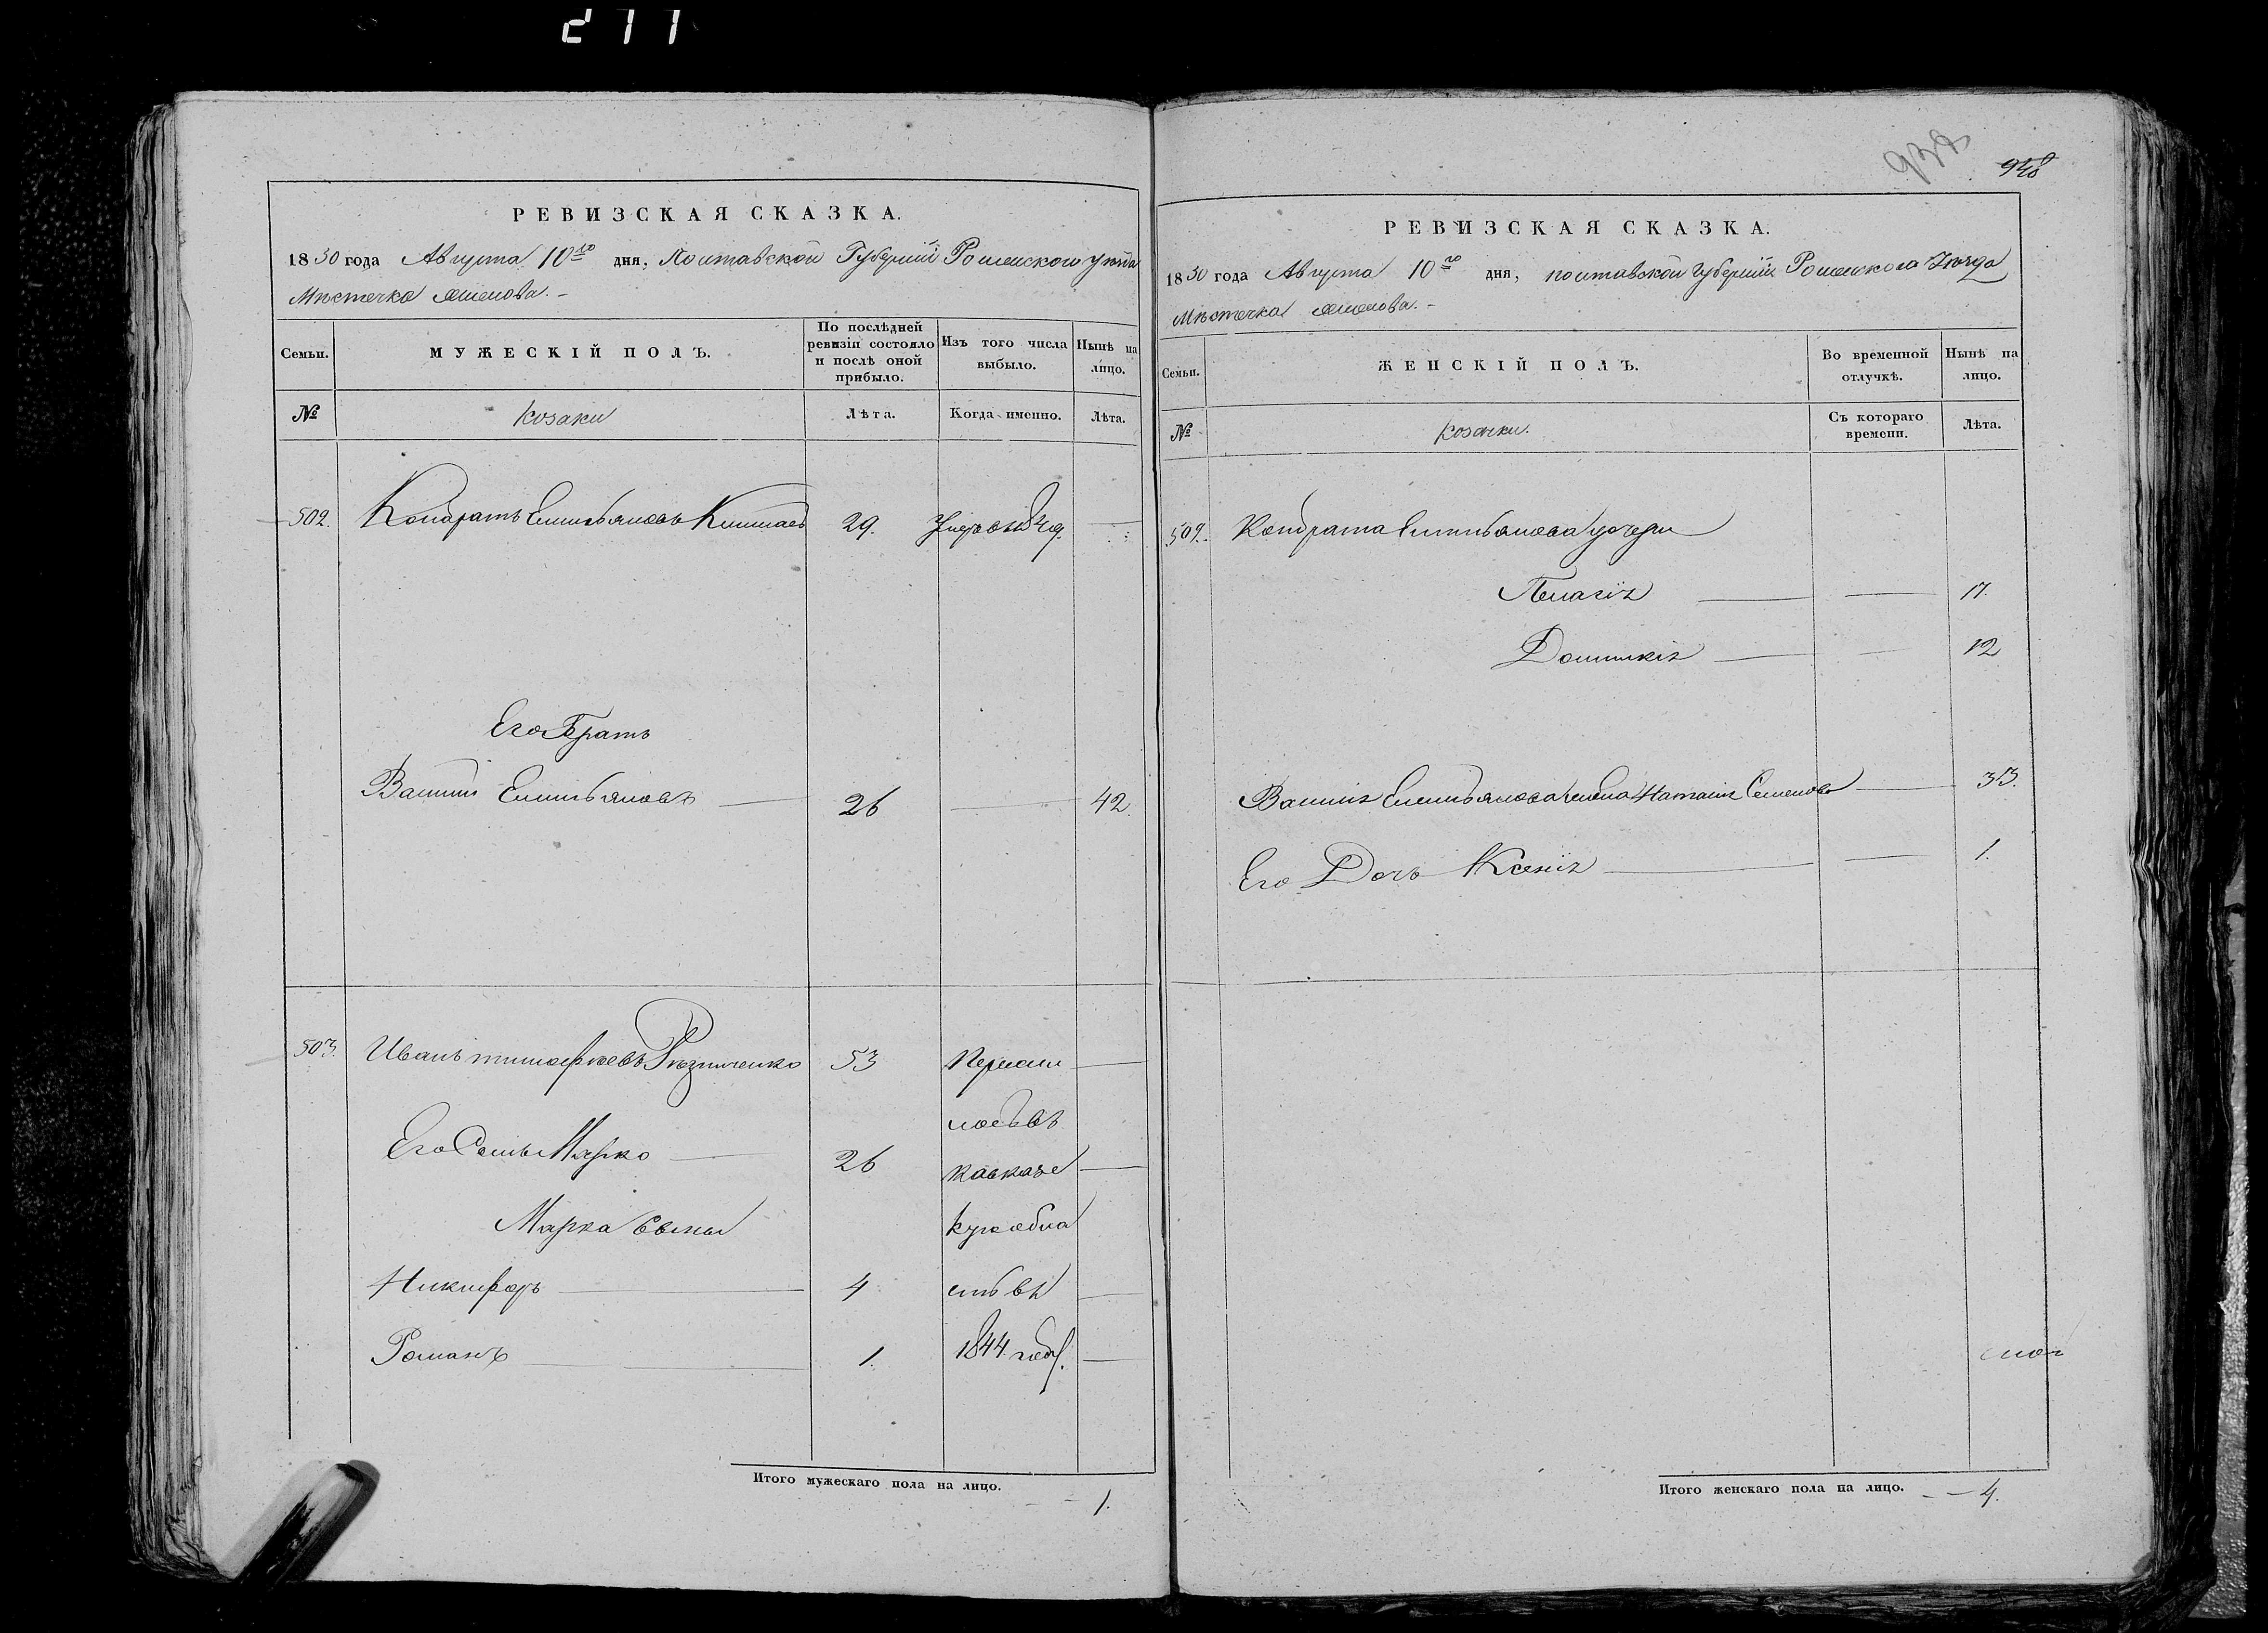 211
РЕВИЗСКАЯ СКАЗКА.
1850 года Августа 10го дня, Полтавской Губернiи Роменского уѣзда
Мѣстечка
Семьи.
МУЖЕСКIЙ ПОЛЪ.
По послѣдней ревизiи состояло и послѣ оной прибыло.
Изъ того числа выбыло.
Нынѣ на лицо.
№
козаки
Лѣта.
Когда именно.
Лѣта.
502. Кондратъ Емельяновъ 29.
Его Братъ
Василiй Емельяновъ 26 42.
503. Иванъ тимофѣевъ Рѣзниченко 53 Пересе
лосьвъ
Его Сынъ Марко 26 кавказе
Марка Сыны
Никифоръ 4
Романъ 1. 1844 годѣ.
Итого мужескаго пола на лицо. 1.
948
РЕВИЗСКАЯ СКАЗКА.
1850 года Августа 10го дня, полтавской губернiи Роменскога Уѣзда
Мѣстечка
Семьи.
ЖЕНСКIЙ ПОЛЪ.
Во временной отлучкѣ.
Нынѣ на лицо.
№
козачки.
Съ котораго времени.
Лѣта.
502. Кондрата Емельянова дочери
Пелагiя 17.
Домникiя 12
Василiя Емельянова жена Наталiя Семенова 33.
Его Дочь Ксенiя 1.
Итого женскаго пола на лицо. 4.